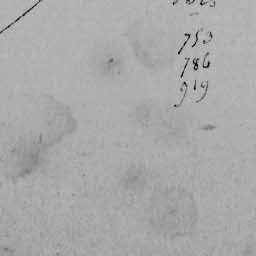 753
786
919